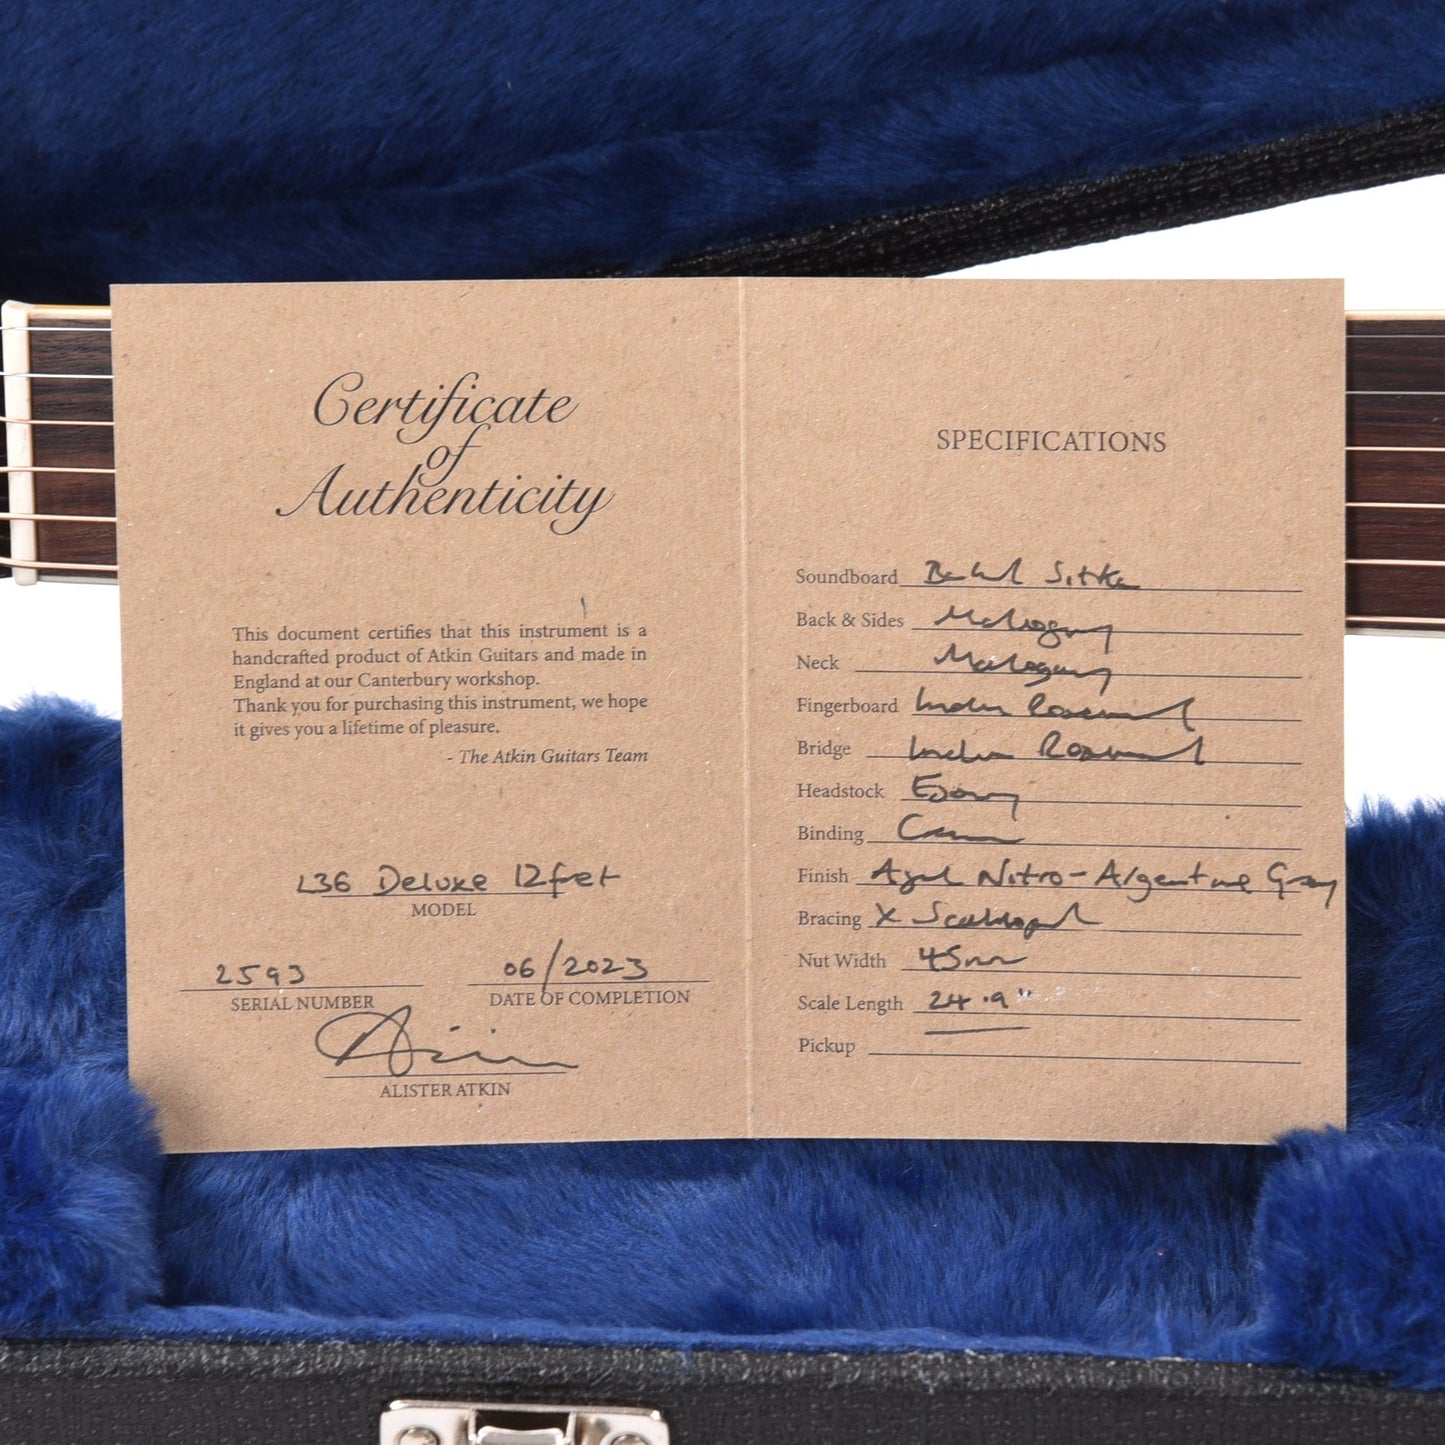 Certificate
of
Authenticity
This document certifies that this instrument is a
handcrafted product of Atkin Guitars and made in
England at our Canterbury workshop.
Thank you for purchasing this instrument, we hope
it gives you a lifetime of pleasure.
- The Atkin Guitars Team
L36 Deluxe 12fret
MODEL
2593
SERIAL NUMBER
06/2023
DATE OF COMPLETION
ALISTER ATKIN
SPECIFICATIONS
Soundboard Baked Sitka
Back & Sides Mahogany
Neck Mahogany
Fingerboard Indian Rosewood
Bridge Indian Rosewood
Headstock Ebony
Binding Cream
Finish Aged Nitro - Argentine Grey
Bracing X Scalloped
Nut Width 45mm
Scale Length 24.9"
Pickup